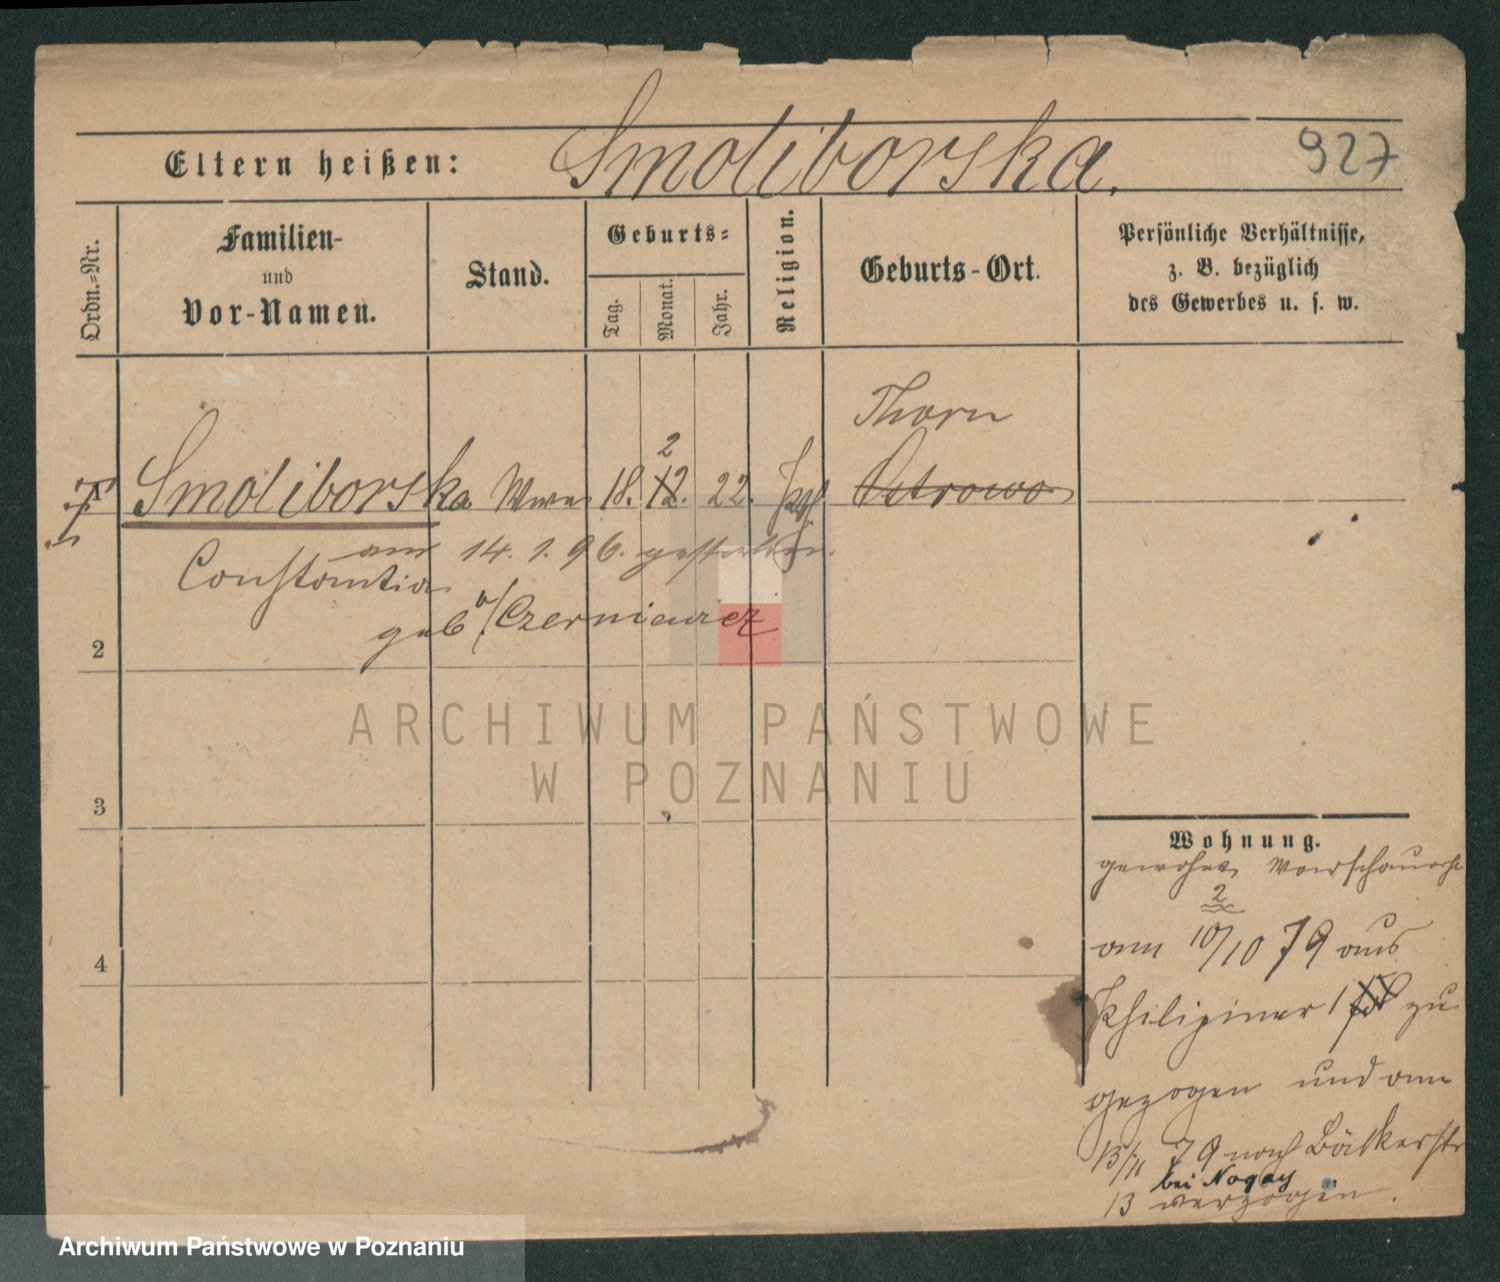 927
Eltern heißen: Smoliborska.
Ordn.-Nr.
Familien-
und
Vor-Namen.
Stand.
Geburts-
Tag.
Monat.
Jahr.
Religion.
Geburts-Ort.
Persönliche Verhältnisse,
z. B. bezüglich
des Gewerbes u. s. w.
Thorn
2
1 Smoliborska Wwe 18. 12. 22. kath Ostrowo
am 14. 1. 96. gestorben.
Constantia
geb v. Czerniewicz
2
3
4
ARCHIWUM PAŃSTWOWE
W POZNANIU
Wohnung.
2
am 10/10 79 aus
1 zu
gezogen und am
13/11 79 nach Bäckerstr
bei Nogay
13 verzogen.
Archiwum Państwowe w Poznaniu